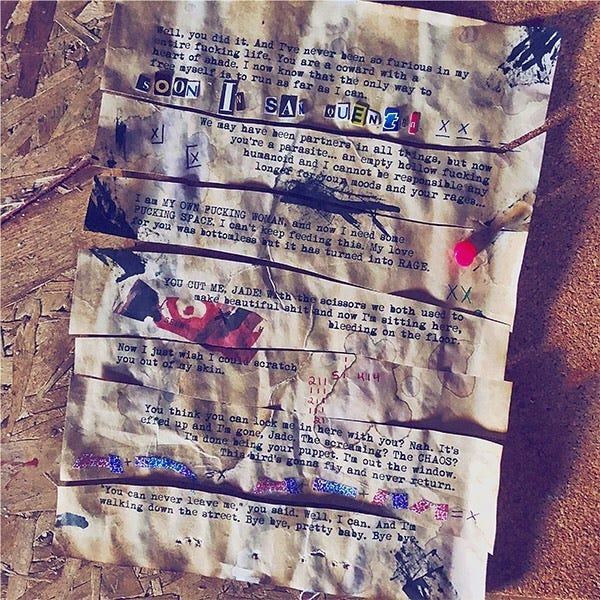 Well, you did it. And I've never been so furious in my
entire fucking life. You are a coward with a
heart of shade. I now know that the only way to
free myself is to run as far as I can.
SOON IN SAN QUENtin
X X _
We may have been partners in all things, but now
you're a parasite... an empty hollow fucking
humanoid and I cannot be responsible any
longer for your moods and your rages...
I am MY OWN FUCKING WOMAN, and now I need some
FUCKING SPACE. I can't keep feeding this. My love
for you was bottomless but it has turned into RAGE.
XX
YOU CUT ME, JADE! With the scissors we both used to
make beautiful shit and now I'm sitting here,
bleeding on the floor.
Now I just wish I could scratch
you out of my skin.
You think you can lock me in here with you? Nah. It's
effed up and I'm gone, Jade. The screaming? The CHAOS?
I'm done being your puppet. I'm out the window.
This bird's gonna fly and never return.
+ = X + + = X
"You can never leave me," you said. Well, I can. And I'm
walking down the street. Bye bye, pretty baby. Bye bye.